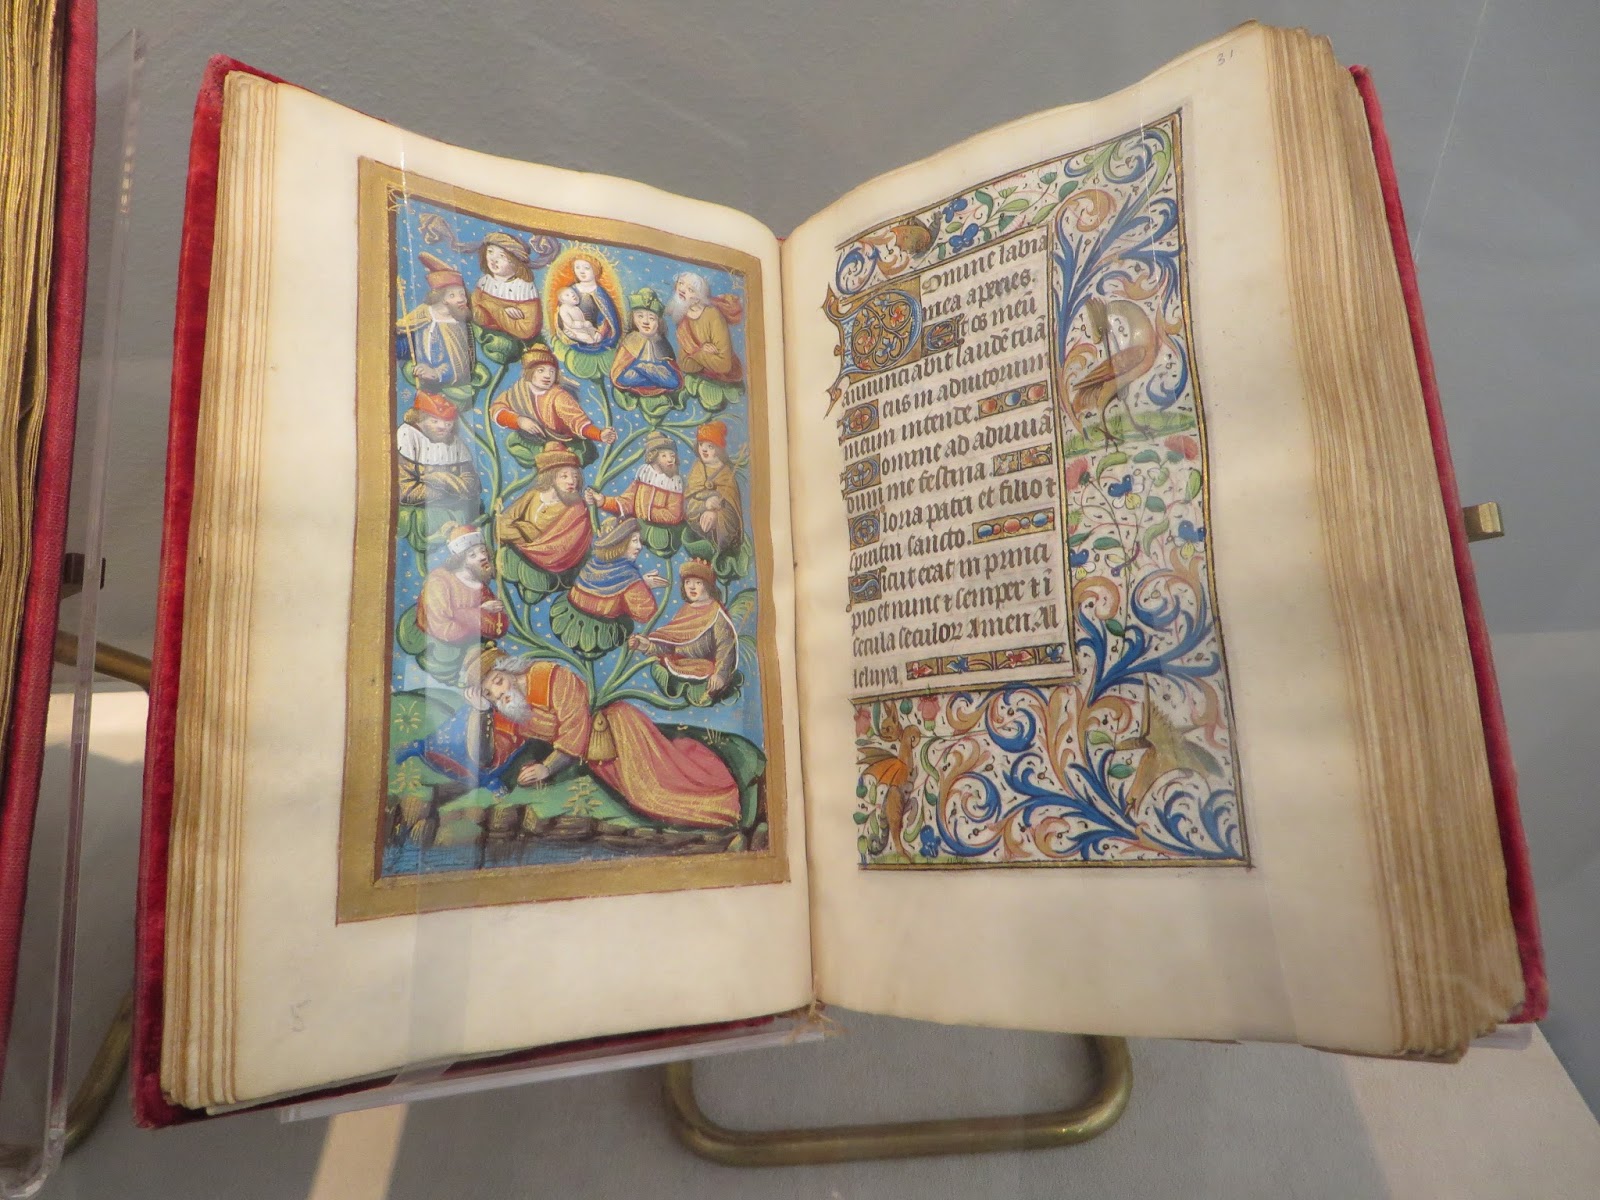 31
Domine labia
mea aperies.
Et os meū
annunciabit laudē tuā
Deus in adiutorium
meum intende.
Domine ad adiuuā
dum me festina.
Gloria patri et filio ⁊
spiritui sancto.
Sicut erat in princi
pio et nunc ⁊ semper ⁊ ī
secula seculorꝫ Amen. Al
leluya.
5